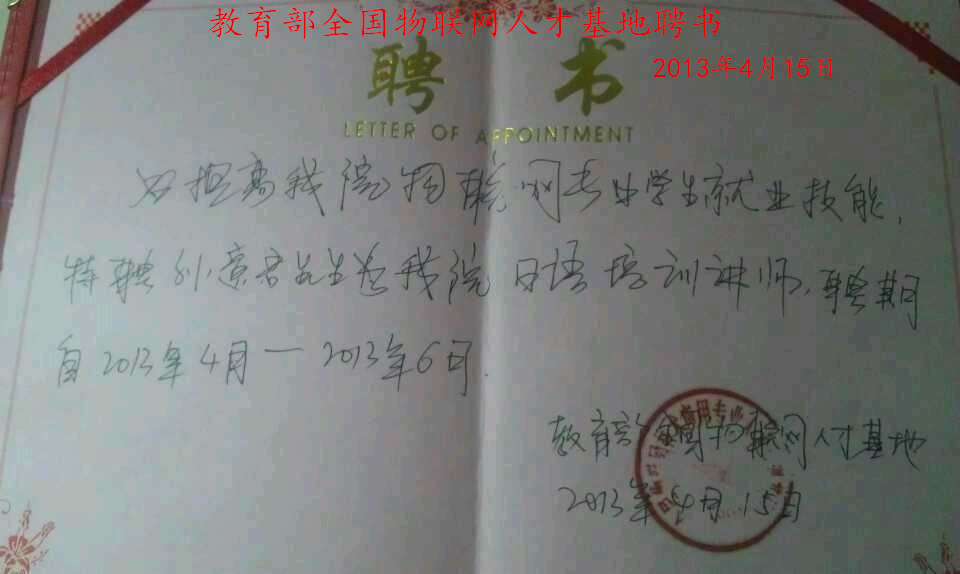 教育部全国物联网人才基地聘书
聘 书
2013年4月15日
LETTER OF APPOINTMENT
为提高我院物联网专业学生就业技能，
特聘 先生为我院日语培训讲师，聘期
自2013年4月—2013年6月.
教育部全国物联网人才基地
2013年4月15日